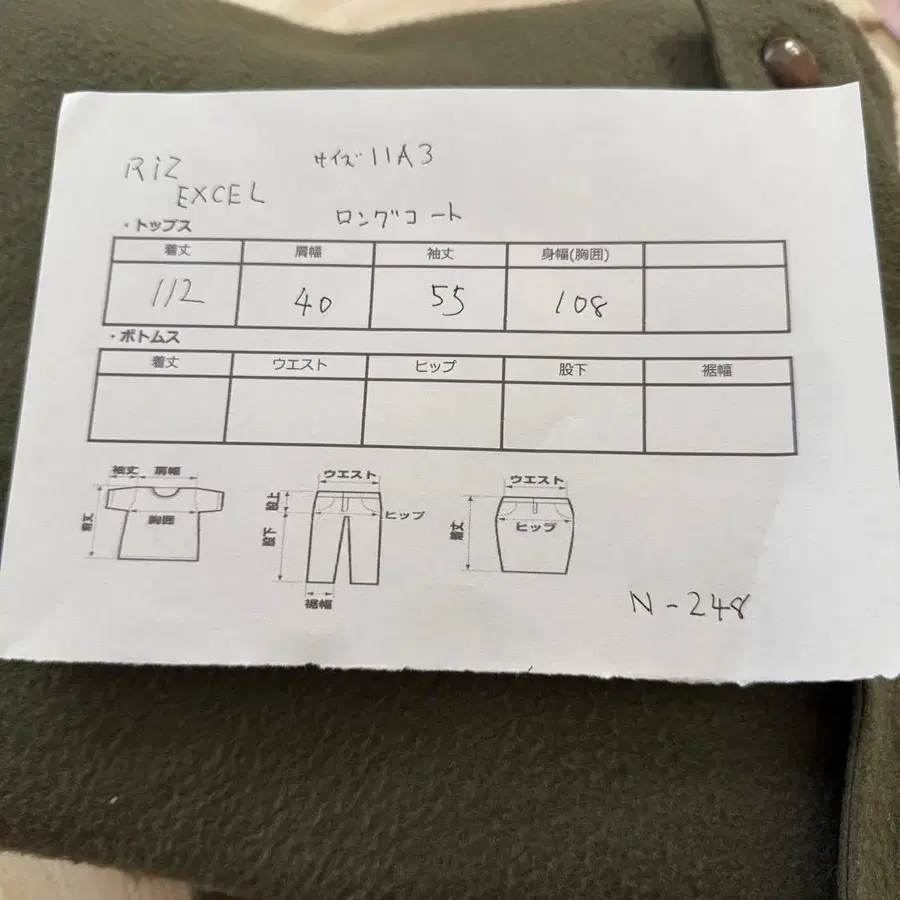 RiZ サイズ 11A3
EXCEL
ロングコート
・トップス
着丈 肩幅 袖丈 身幅(胸囲)
112 40 55 108
・ボトムス
着丈 ウエスト ヒップ 股下 裾幅
袖丈 肩幅
着丈
胸囲
ウエスト
股上
ヒップ
股下
裾幅
ウエスト
着丈
ヒップ
N-248